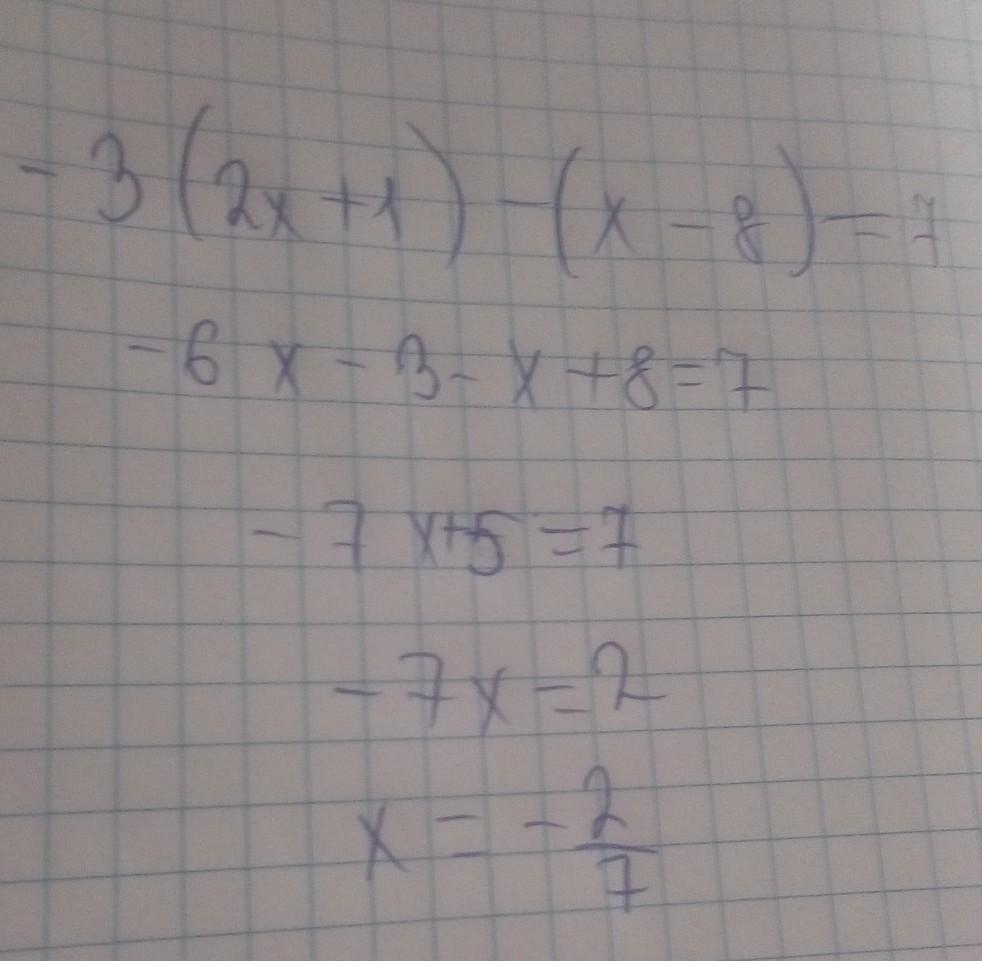 -3(2x+1)-(x-8)=7
-6x-3-x+8=7
-7x+5=7
-7x=2
x=-2/7